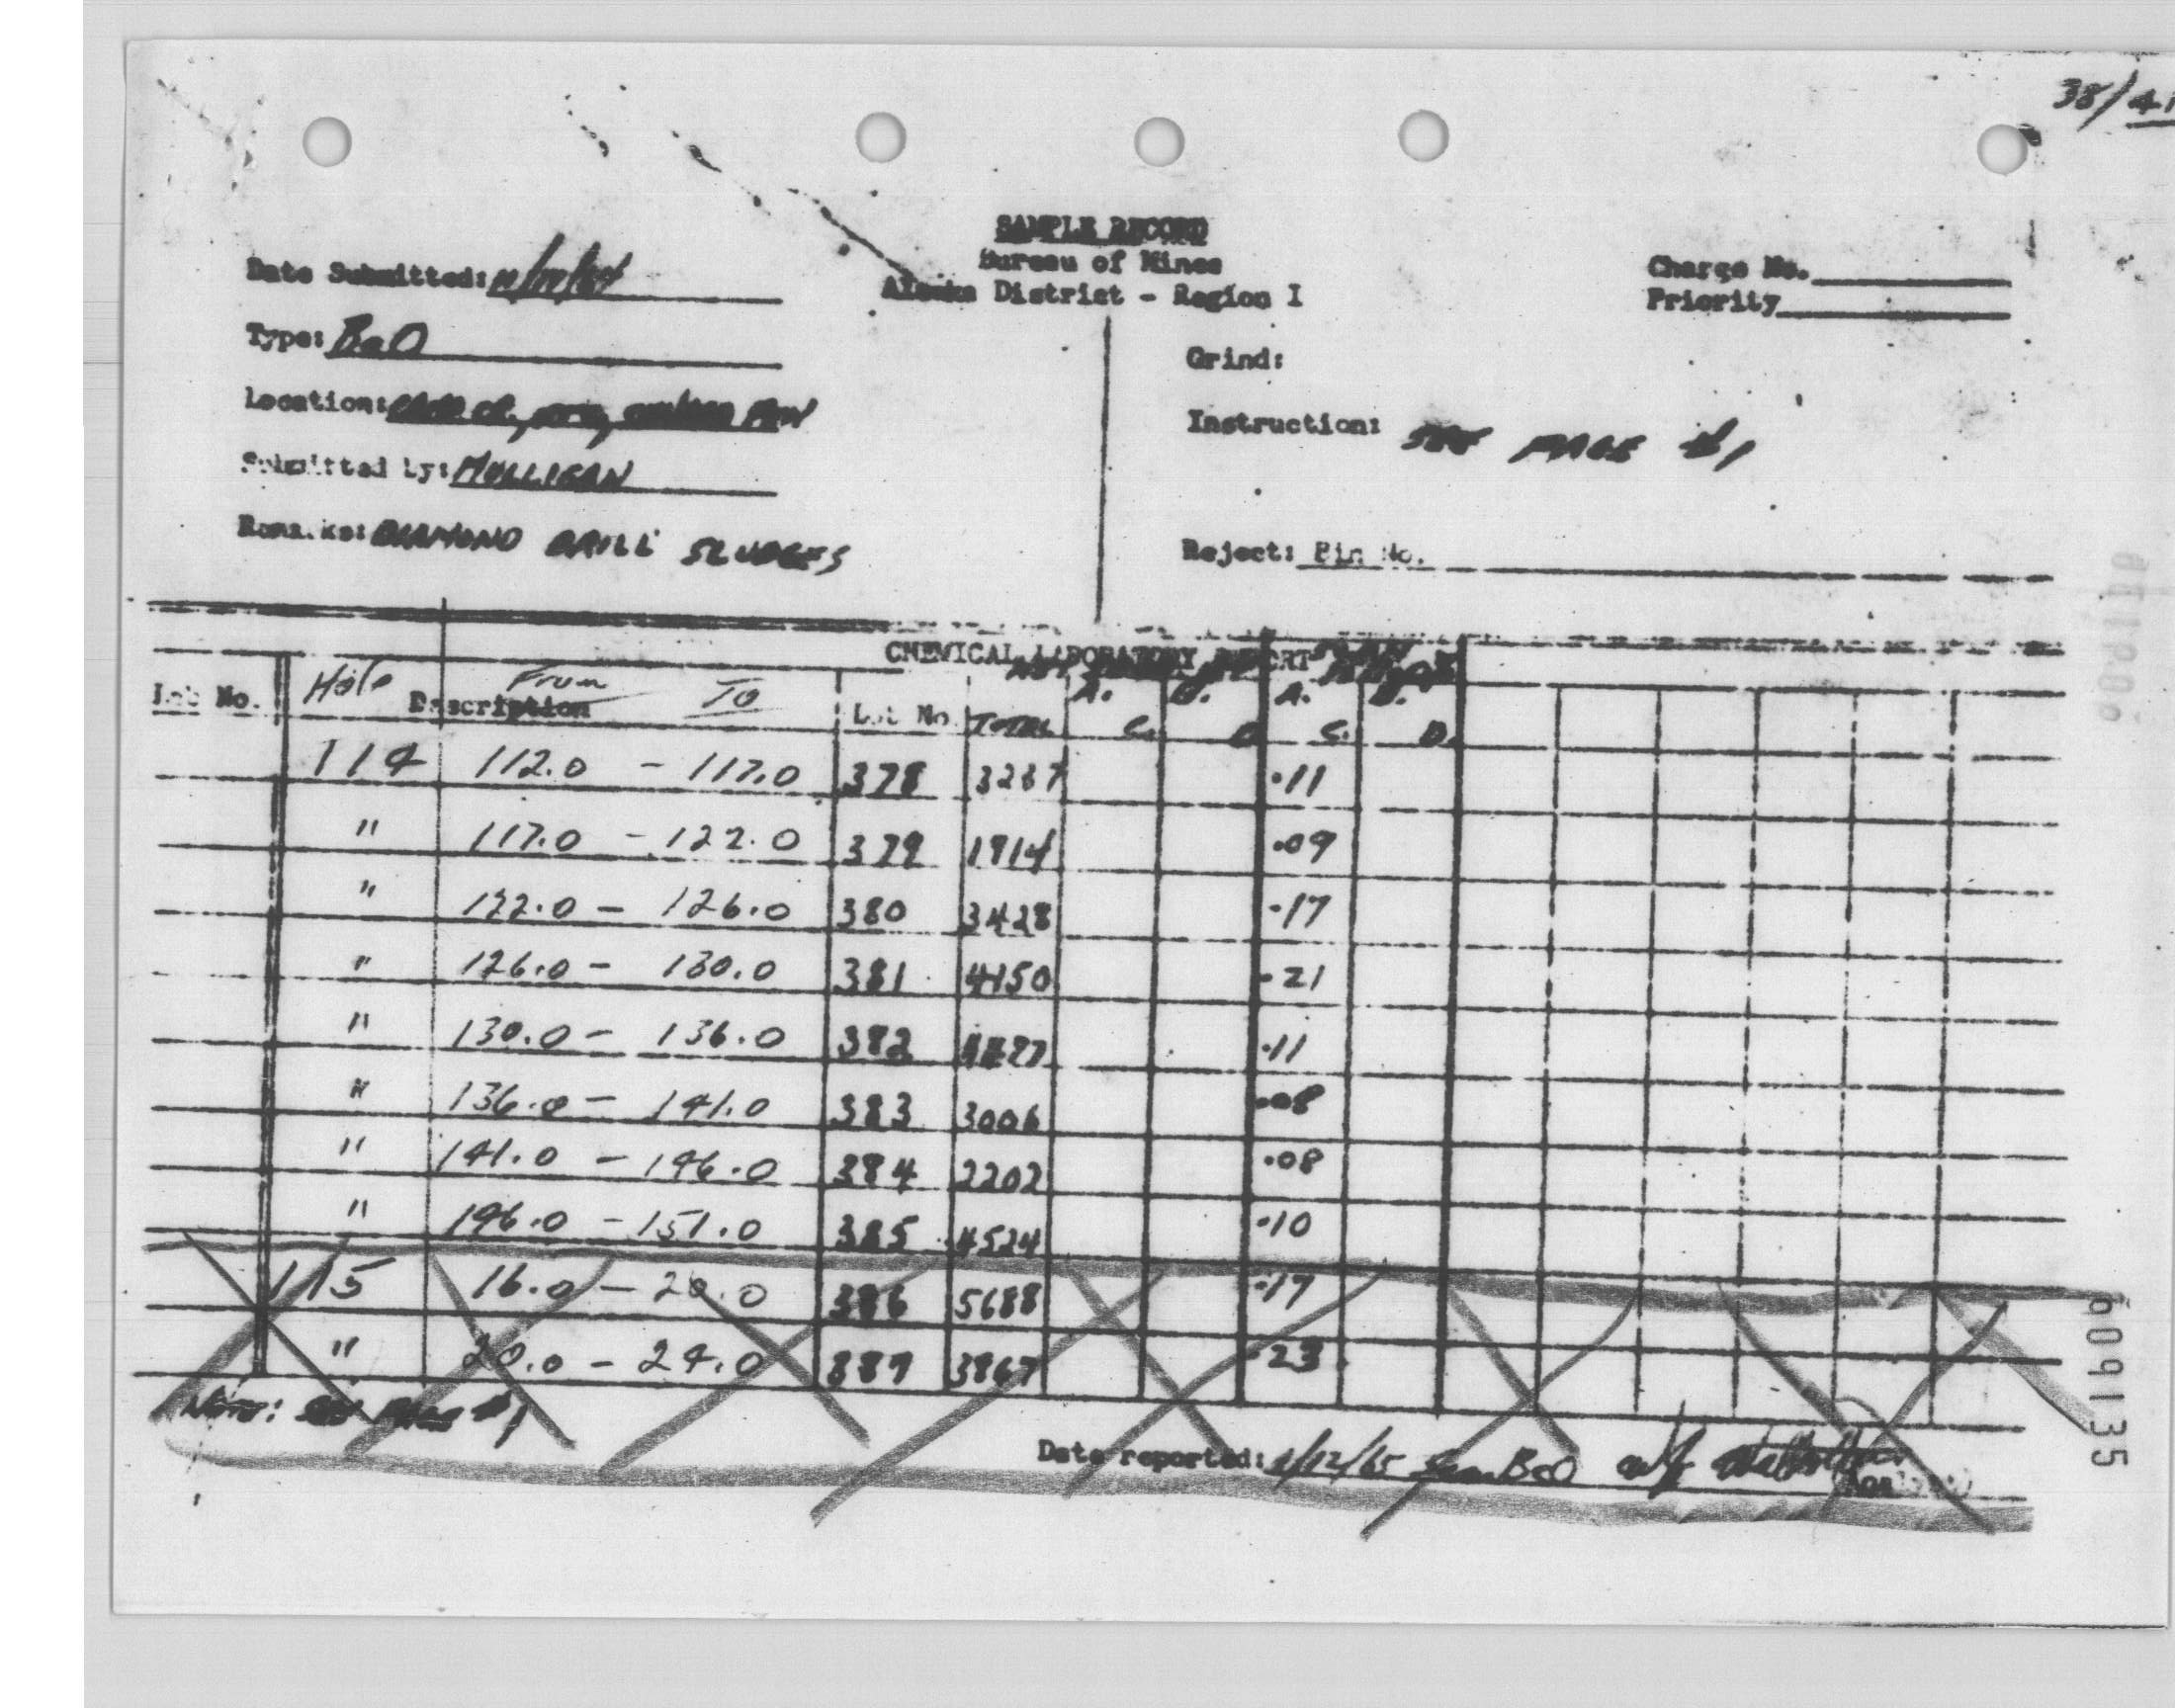 38/41
SAMPLE RECORD
Bureau of Mines
Alaska District - Region I
Date Submitted:
Charge No.
Priority
Type: BeO
Grind:
Location:
Instruction: SEE PAGE #1
Submitted by: MULLIGAN
Remarks: DIAMOND DRILL SLUDGES
Reject: Bin No.
CHEMICAL LABORATORY REPORT
Lab No. Hole Description From To Lot No. TOTAL A. B. A. B.
C. D. C. D.
114 112.0 - 117.0 378 3237 .11
" 117.0 - 122.0 379 1914 .09
" 122.0 - 126.0 380 3428 .17
" 126.0 - 130.0 381 4150 .21
" 130.0 - 136.0 382 .11
" 136.0 - 141.0 383 3006 .08
" 141.0 - 146.0 384 2202 .08
" 146.0 - 151.0 385 4524 .10
115 16.0 - 20.0 386 5688 .17
" 20.0 - 24.0 387 3867 .23
Note: See Page #1
Date reported: 1/12/65 BeO
609135